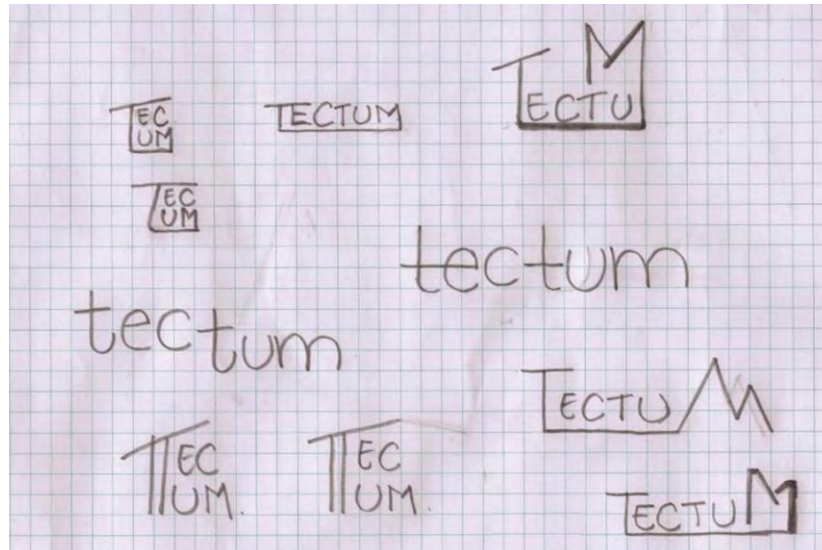 TEC
UM
TECTUM
TECTUM
TEC
UM
tectum
tectum
TECTUM
TEC
UM.
TEC
UM.
TECTUM